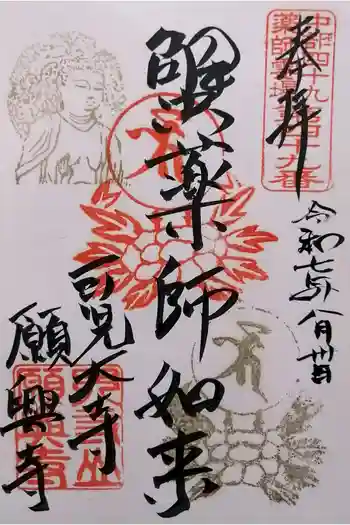 奉拝
中部四十九
薬師霊場
十九番
令和七年八月卅日
蟹薬師如来
可児大寺
願興寺
大寺山
願興寺